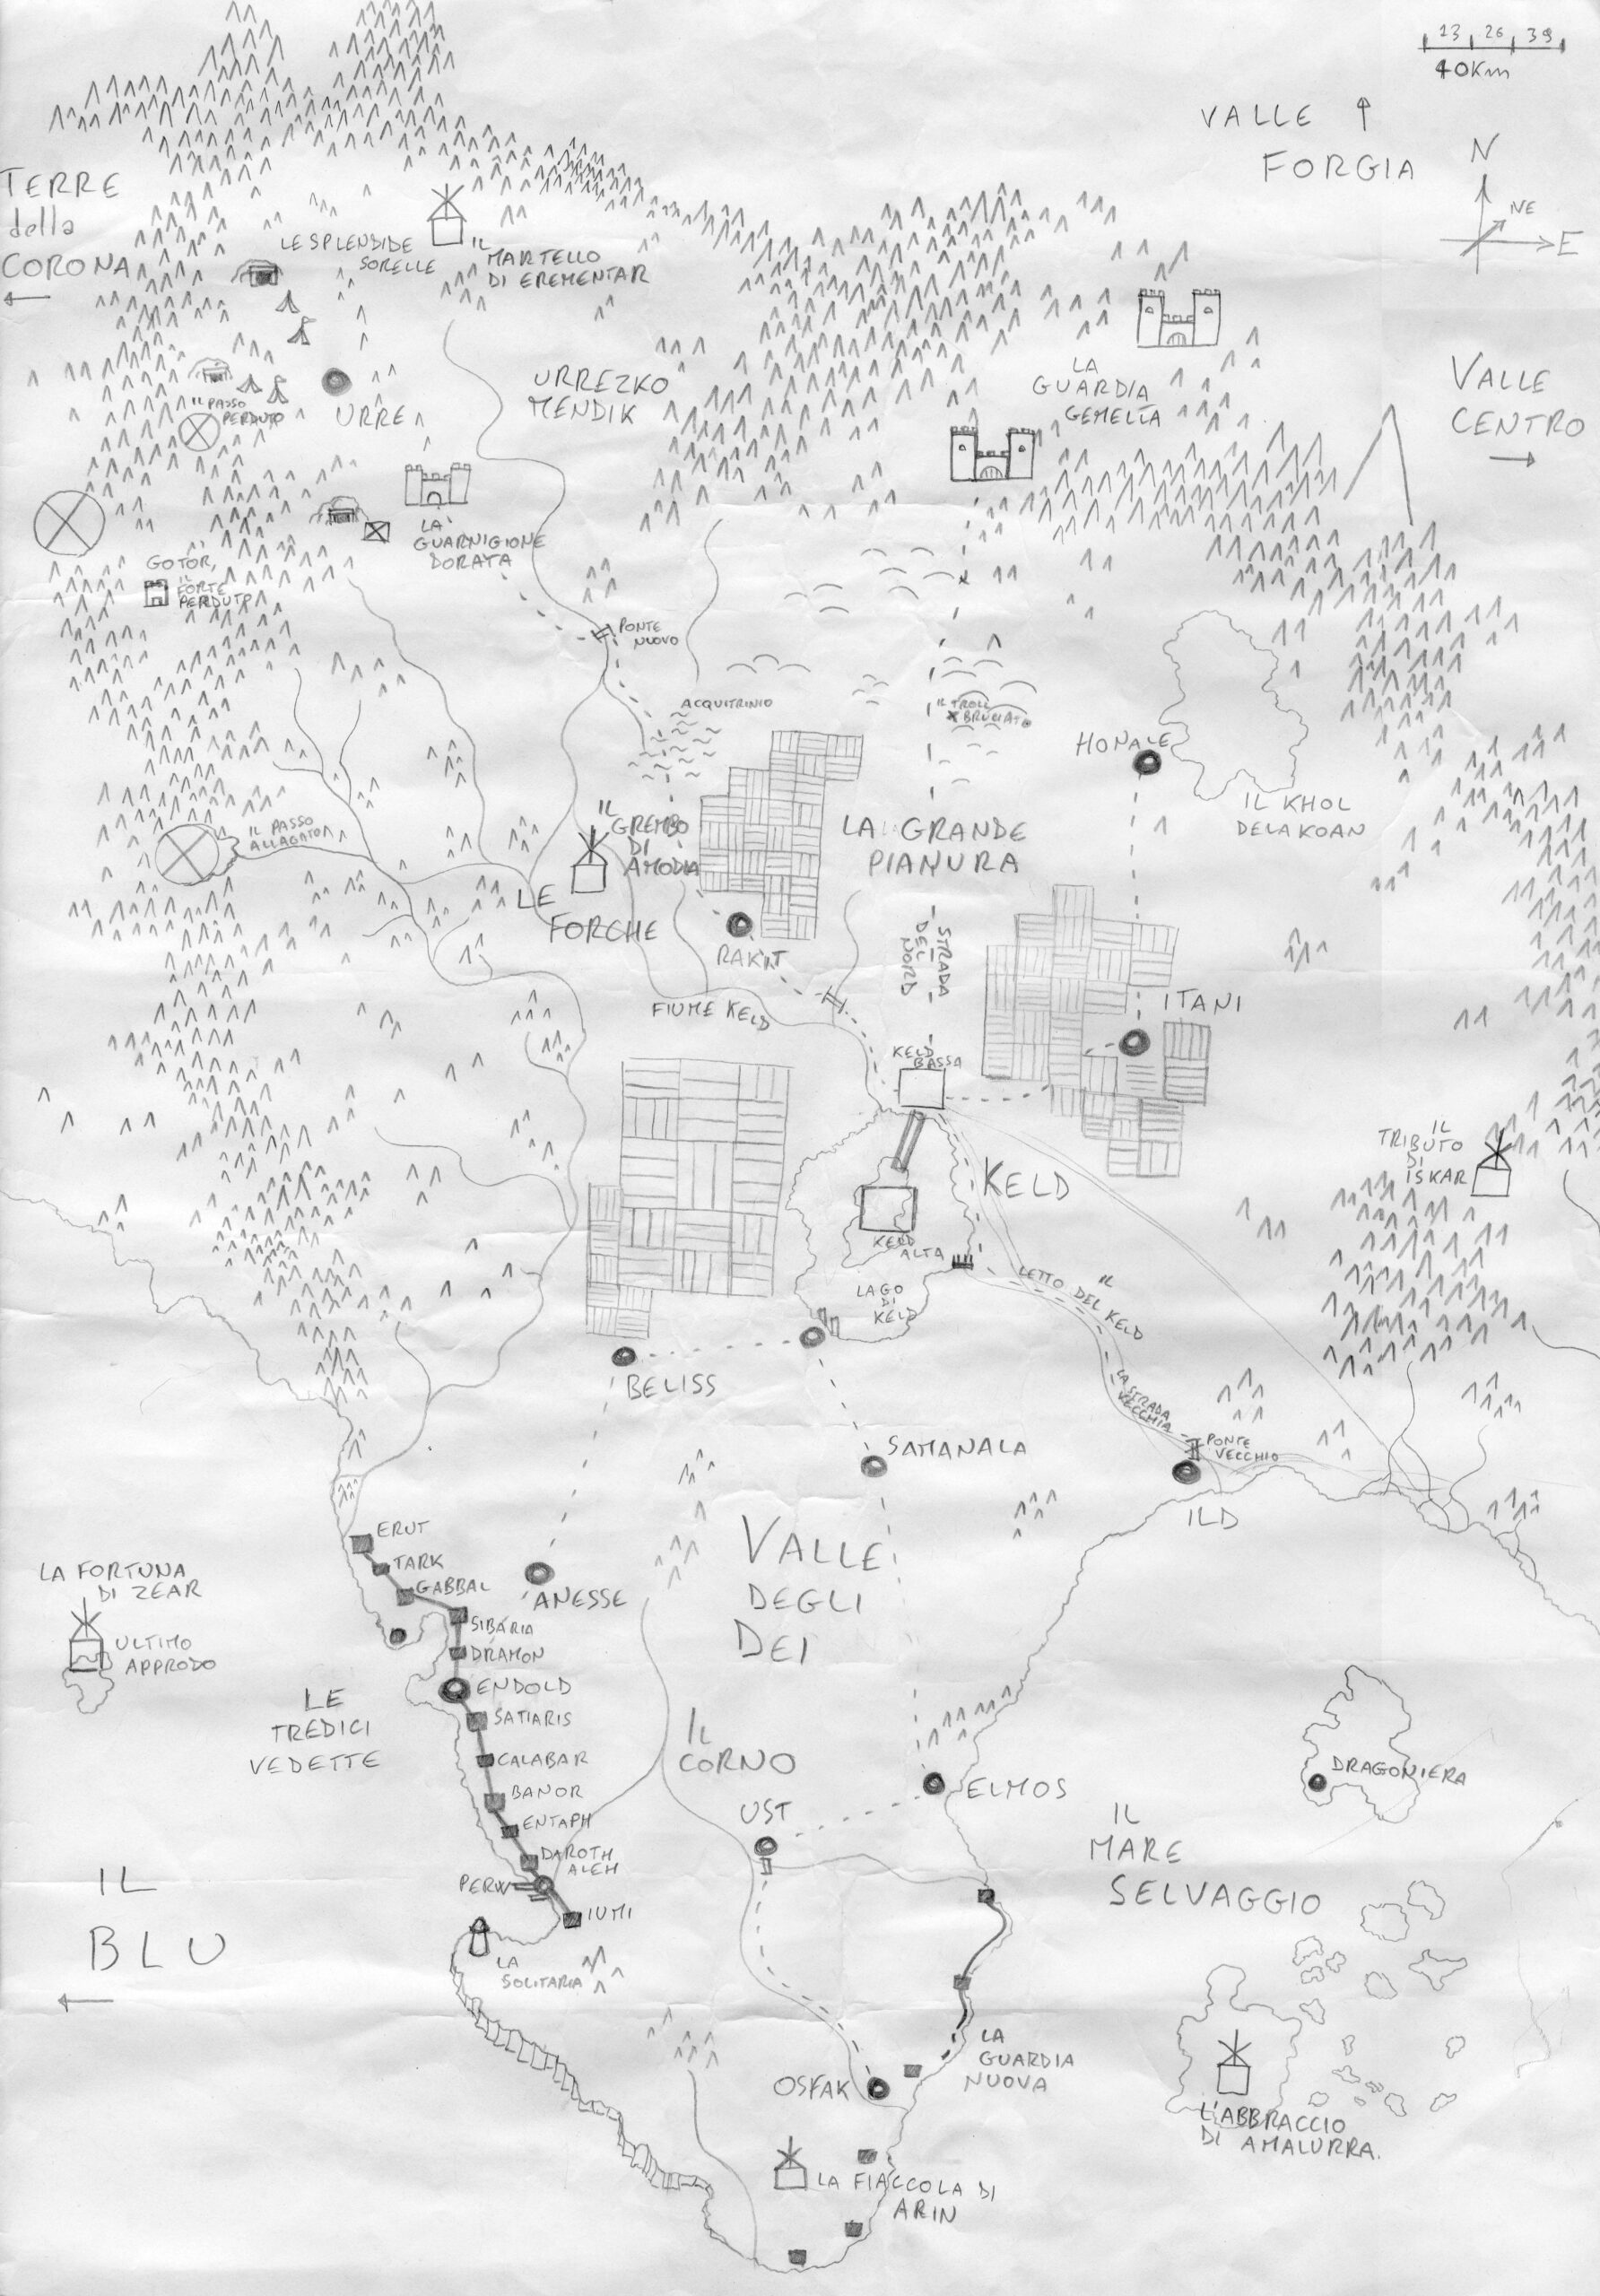 13 26 39
40Km
VALLE ↑
FORGIA
N
NE
E
TERRE
della
CORONA
←
LE SPLENDIDE
SORELLE
IL
MARTELLO
DI EREMENTAR
VALLE
CENTRO
→
LA
GUARDIA
GEMELLA
URREZKO
MENDIK
IL PASSO
PERDUTO
URRE
LA
GUARNIGIONE
DORATA
GOTOR,
IL
FORTE
PERDUTO
PONTE
NUOVO
ACQUITRINIO
IL TROLL
BRUCIATO
HONALE
IL KHOL
DELAKOAN
IL PASSO
ALLAGATO
IL
GREMBO
DI
AMODIA
LA GRANDE
PIANURA
LE
FORCHE
RAKIT
STRADA
DEL
NORD
ITANI
FIUME KELD
KELD
BASSA
IL
TRIBUTO
DI
ISKAR
KELD
KELD
ALTA
LAGO
DI
KELD
IL
LETTO DEL KELD
BELISS
LA STRADA
VECCHIA
PONTE
VECCHIO
SAMANALA
ILD
ERUT
TARK
GABBAL
SIBARIA
DRAMON
ENDOLD
SATIARIS
CALABAR
BANOR
ENTAPH
DAROTH
ALEH
PERW
IUMI
ANESSE
VALLE
DEGLI
DEI
LA FORTUNA
DI ZEAR
ULTIMO
APPRODO
LE
TREDICI
VEDETTE
IL
CORNO
UST
ELMOS
DRAGONIERA
IL
MARE
SELVAGGIO
IL
BLU
←
LA
SOLITARIA
LA
GUARDIA
NUOVA
OSFAK
L'ABBRACCIO
DI AMALURRA.
LA FIACCOLA DI
ARIN